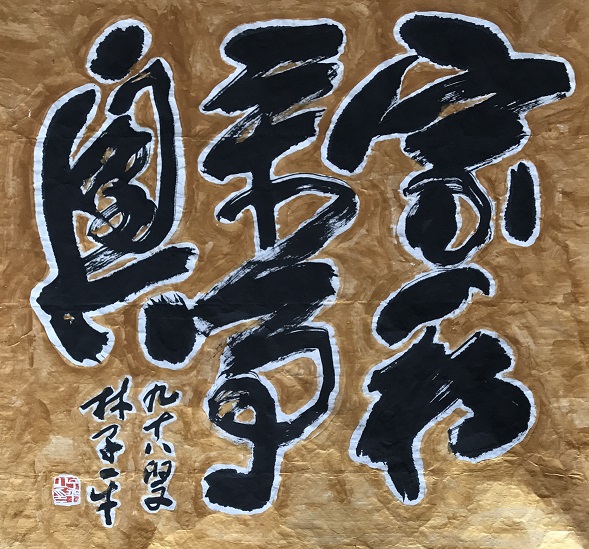 家和
萬事
興
九十八叟
林子平